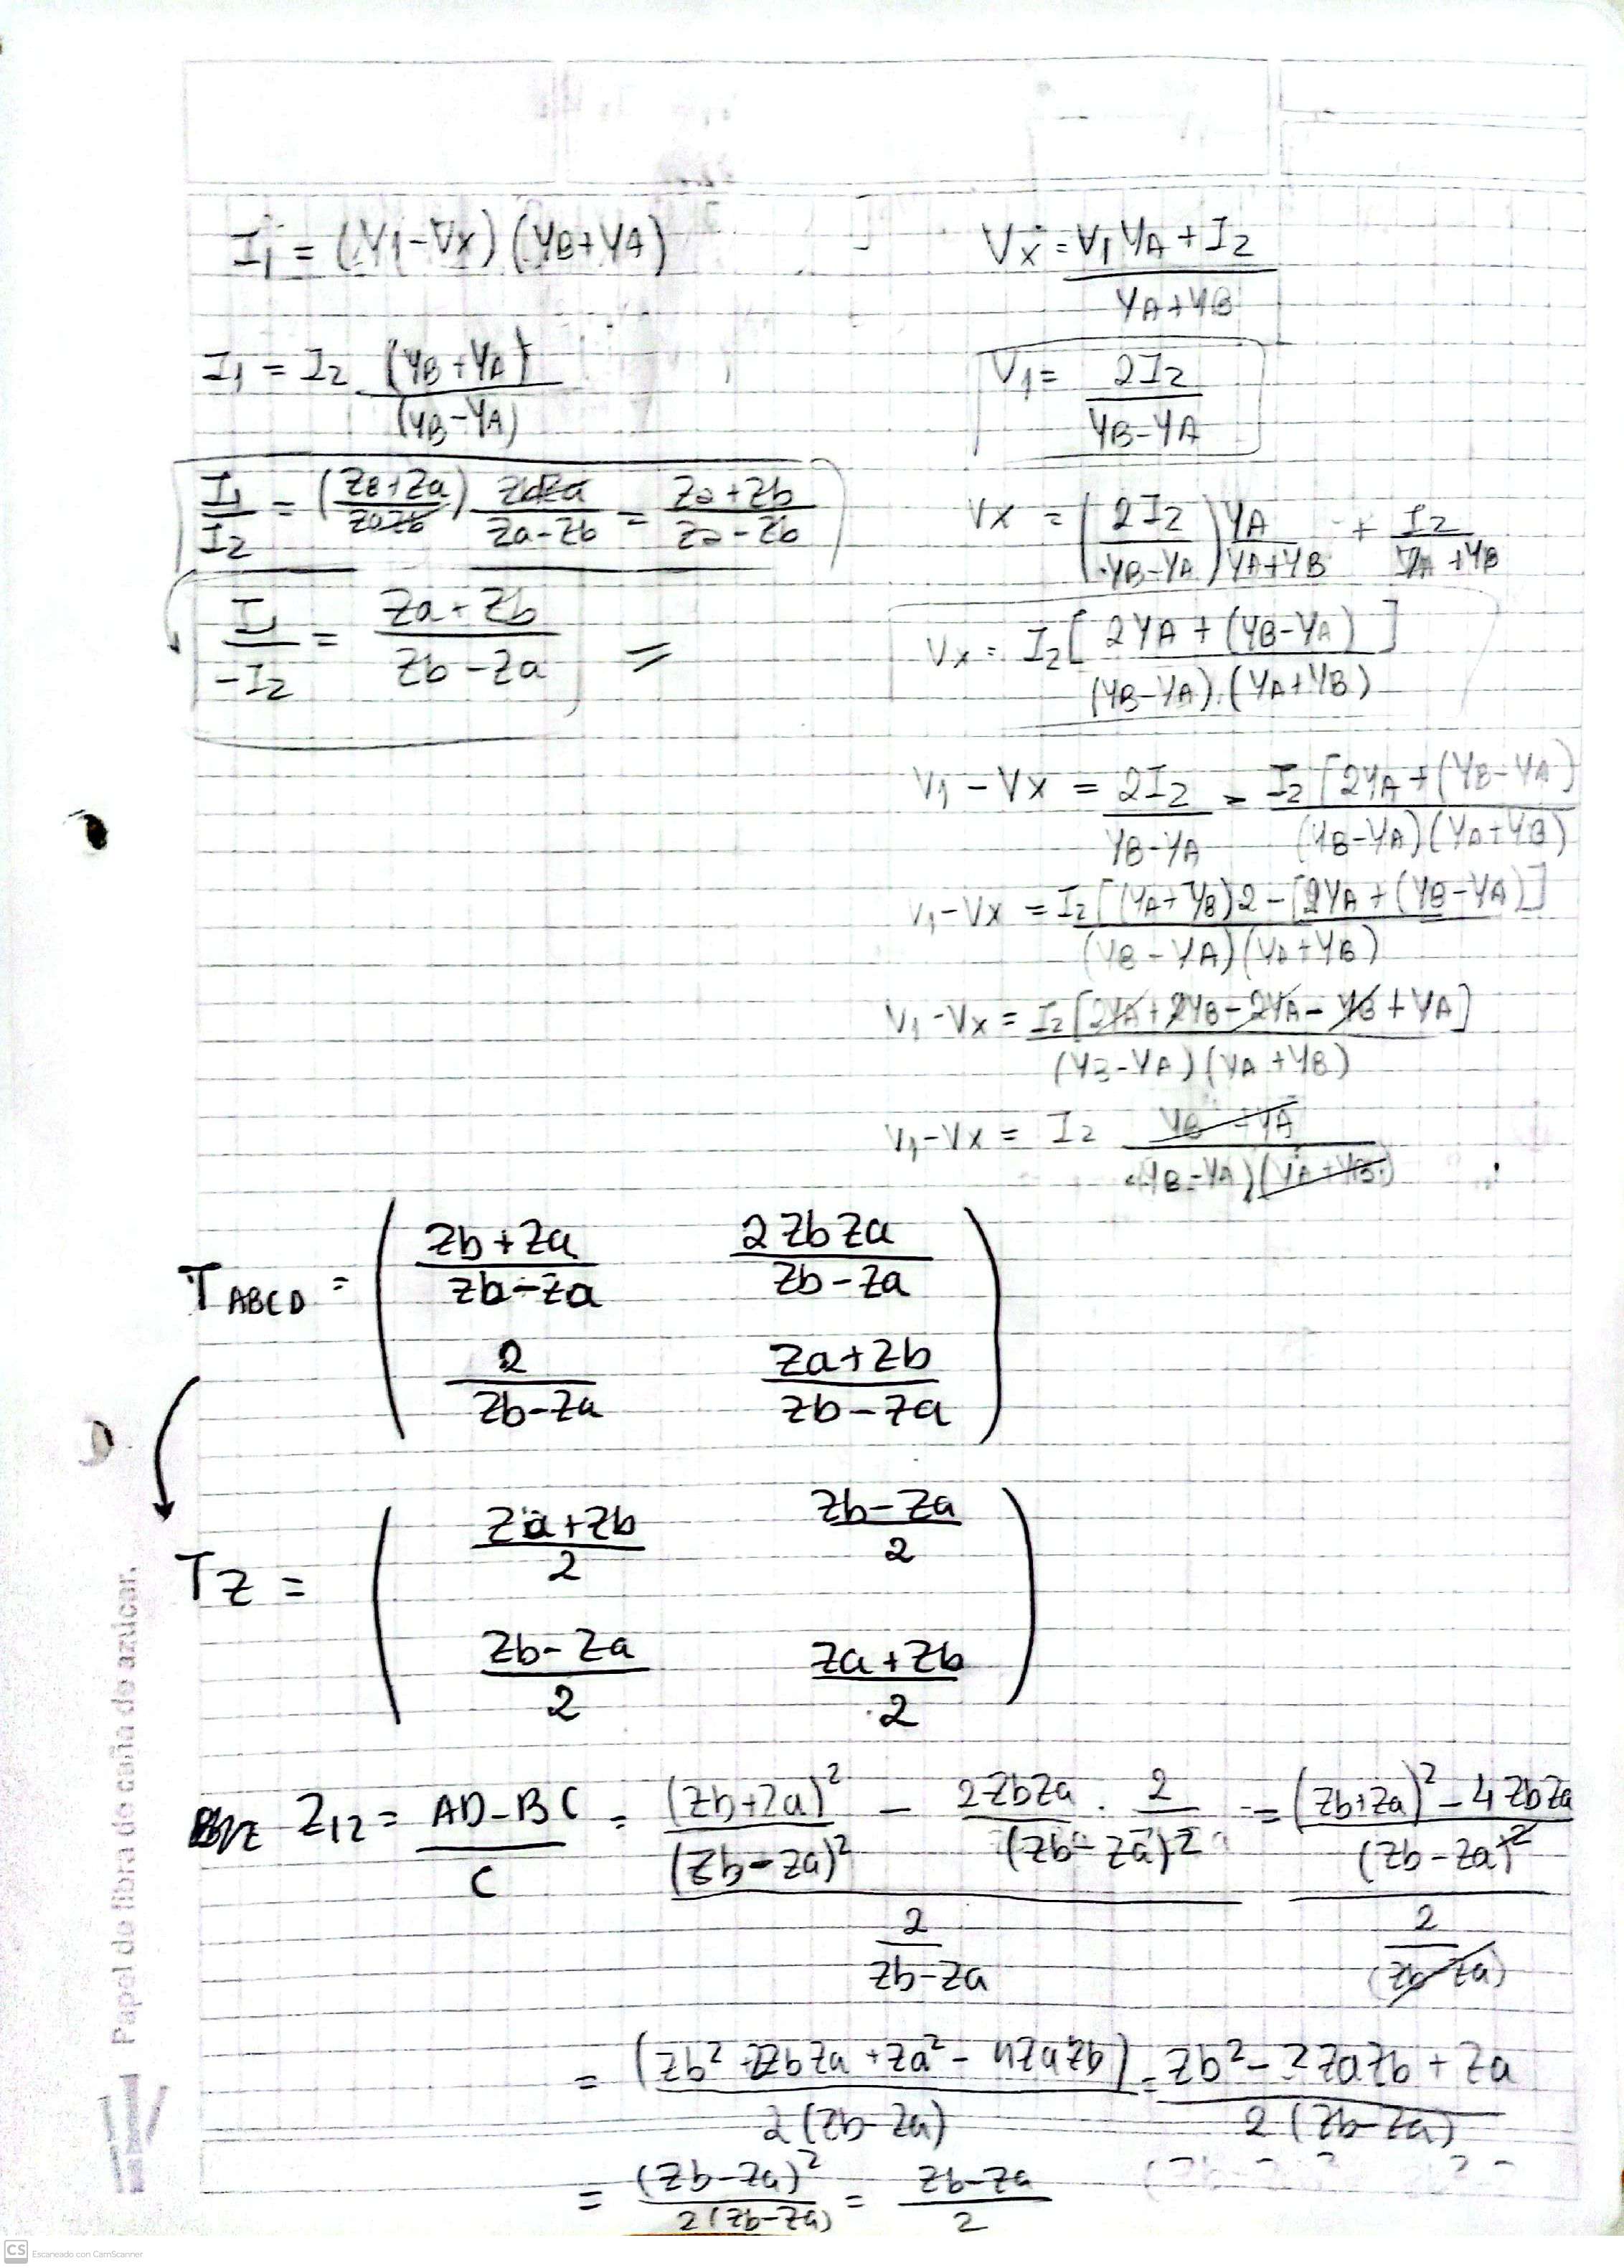 I₁ = (V1-Vx) (YB+YA)
Vx = V1 YA + I2 / YA+YB
I₁ = I2 (YB+YA) / (YB-YA)
V1 = 2I2 / YB-YA
I1 / I2 = (ZB+Za / ZaZb) ZbZa / Za-Zb = Za+Zb / Za-Zb
Vx = (2I2 / YB-YA) YA / YA+YB + I2 / YA+YB
I1 / -I2 = Za+Zb / Zb-Za =
Vx = I2 [2YA + (YB-YA)] / (YB-YA).(YA+YB)
V1 - Vx = 2I2 / YB-YA - I2 [2YA + (YB-YA) / (YB-YA)(YA+YB)
V1-Vx = I2 [(YA+YB)2 - [2YA + (YB-YA)] / (YB-YA)(YA+YB)
V1-Vx = I2 [2YA + 2YB - 2YA - YB + YA] / (YB-YA)(YA+YB)
V1-Vx = I2 YB + YA / (YB-YA)(YA+YB)
T ABCD = ( Zb+Za / Zb-Za 2ZbZa / Zb-Za
2 / Zb-Za Za+Zb / Zb-Za )
TZ = ( Za+Zb / 2 Zb-Za / 2
Zb-Za / 2 Za+Zb / 2 )
Z12 = AD-BC / C = (Zb+Za)² / (Zb-Za)² - 2ZbZa . 2 / (Zb-Za)2 / 2 / Zb-Za = (Zb+Za)² - 4ZbZa / (Zb-Za)² / 2 / (Zb-Za)
= (Zb² + 2ZbZa + Za² - 4ZaZb) / 2(Zb-Za) = Zb² - 2ZaZb + Za / 2(Zb-Za)
= (Zb-Za)² / 2(Zb-Za) = Zb-Za / 2
Papel de fibra de caña de azúcar.
CS Escaneado con CamScanner